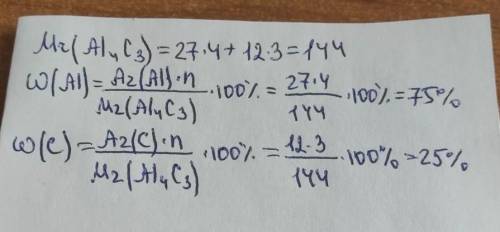 Mr(Al₄C₃)=27·4+12·3=144
ω(Al)=Ar(Al)·n/Mr(Al₄C₃)·100%=27·4/144·100%=75%
ω(C)=Ar(C)·n/Mr(Al₄C₃)·100%=12·3/144·100%=25%